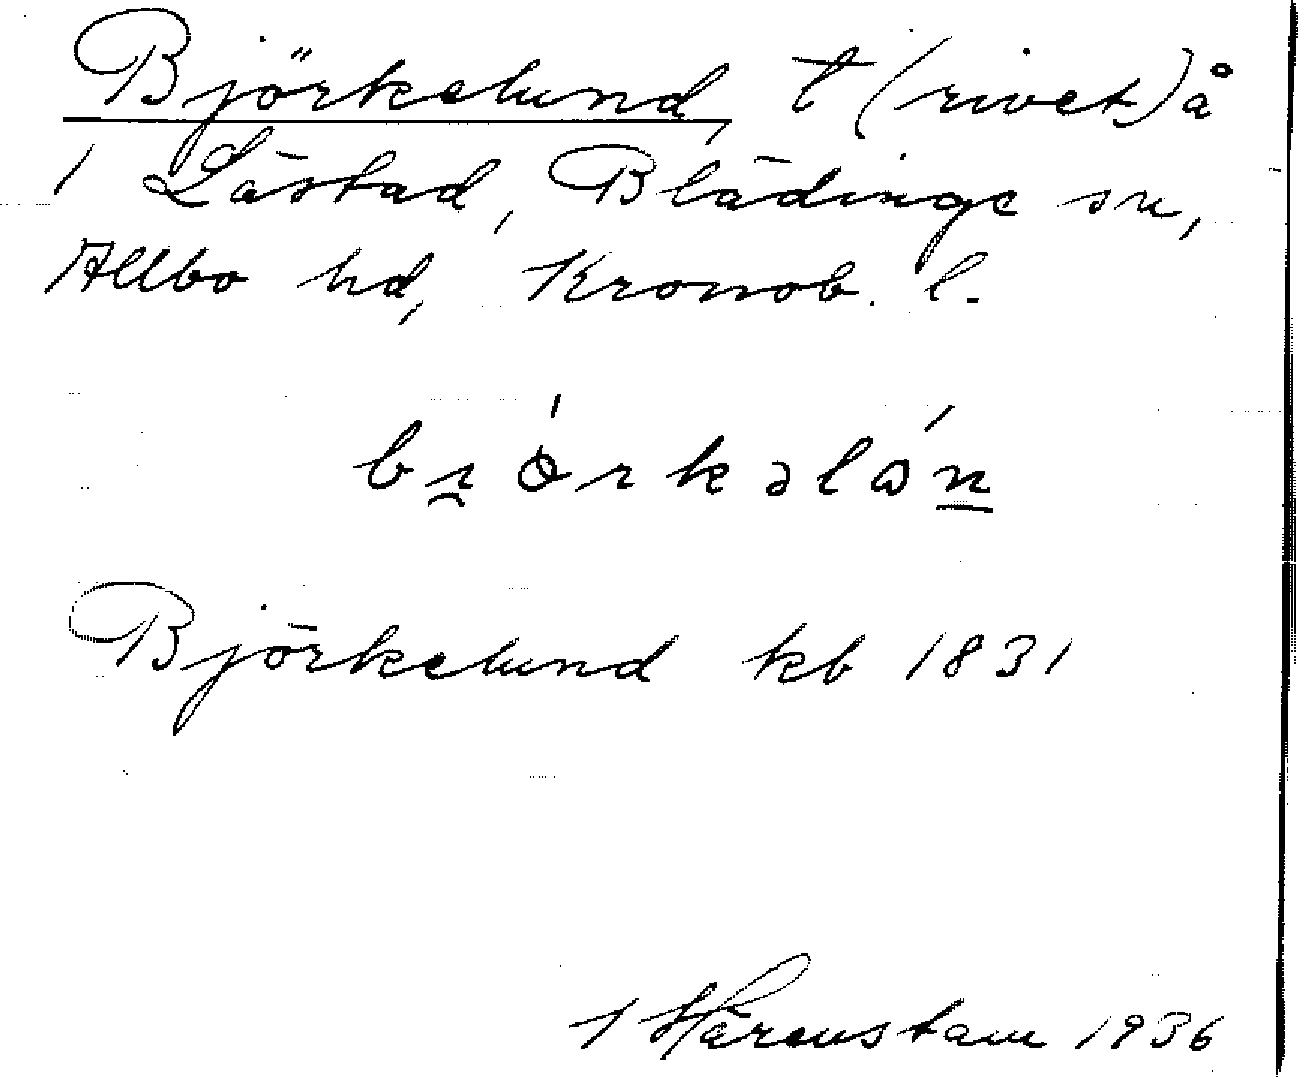 Björkelund, t (rivet) å
1 Låstad, Blädinge sn,
Allbo hd, Kronob. l.
Björkelund kb 1831
Härenstam 1936